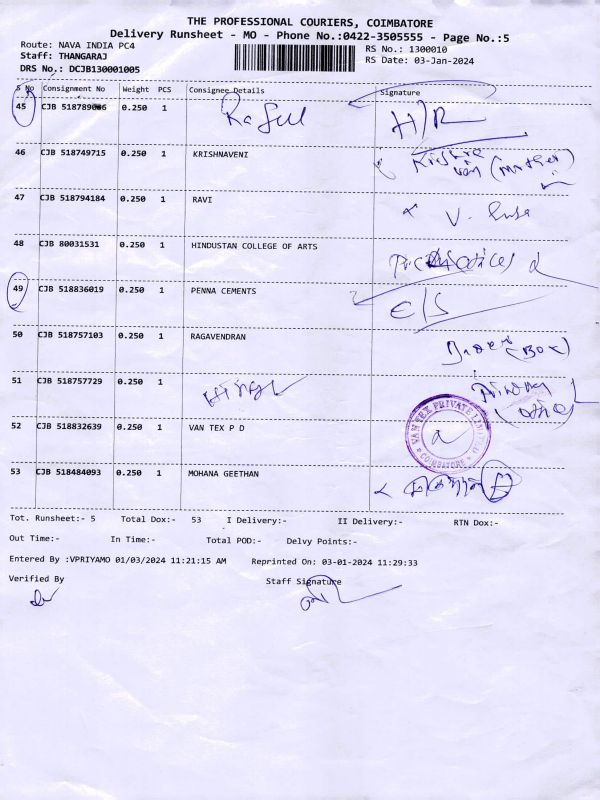 THE PROFESSIONAL COURIERS, COIMBATORE
Delivery Runsheet - MO - Phone No.:0422-3505555 - Page No.:5
Route: NAVA INDIA PC4
RS No.: 1300010
Staff: THANGARAJ
RS Date: 03-Jan-2024
DRS No.: DCJB130001005
S No Consignment No Weight PCS Consignee Details Signature
45 CJB 518789006 0.250 1 H/R
46 CJB 518749715 0.250 1 KRISHNAVENI (mother)
47 CJB 518794184 0.250 1 RAVI V.
48 CJB 80031531 0.250 1 HINDUSTAN COLLEGE OF ARTS
49 CJB 518836019 0.250 1 PENNA CEMENTS
50 CJB 518757103 0.250 1 RAGAVENDRAN (Box)
51 CJB 518757729 0.250 1
52 CJB 518832639 0.250 1 VAN TEX P D
VAN TEX PRIVATE LIMITED
COIMBATORE
53 CJB 518484093 0.250 1 MOHANA GEETHAN
Tot. Runsheet:- 5 Total Dox:- 53 I Delivery:- II Delivery:- RTN Dox:-
Out Time:- In Time:- Total POD:- Delvy Points:-
Entered By :VPRIYAMO 01/03/2024 11:21:15 AM Reprinted On: 03-01-2024 11:29:33
Verified By Staff Signature